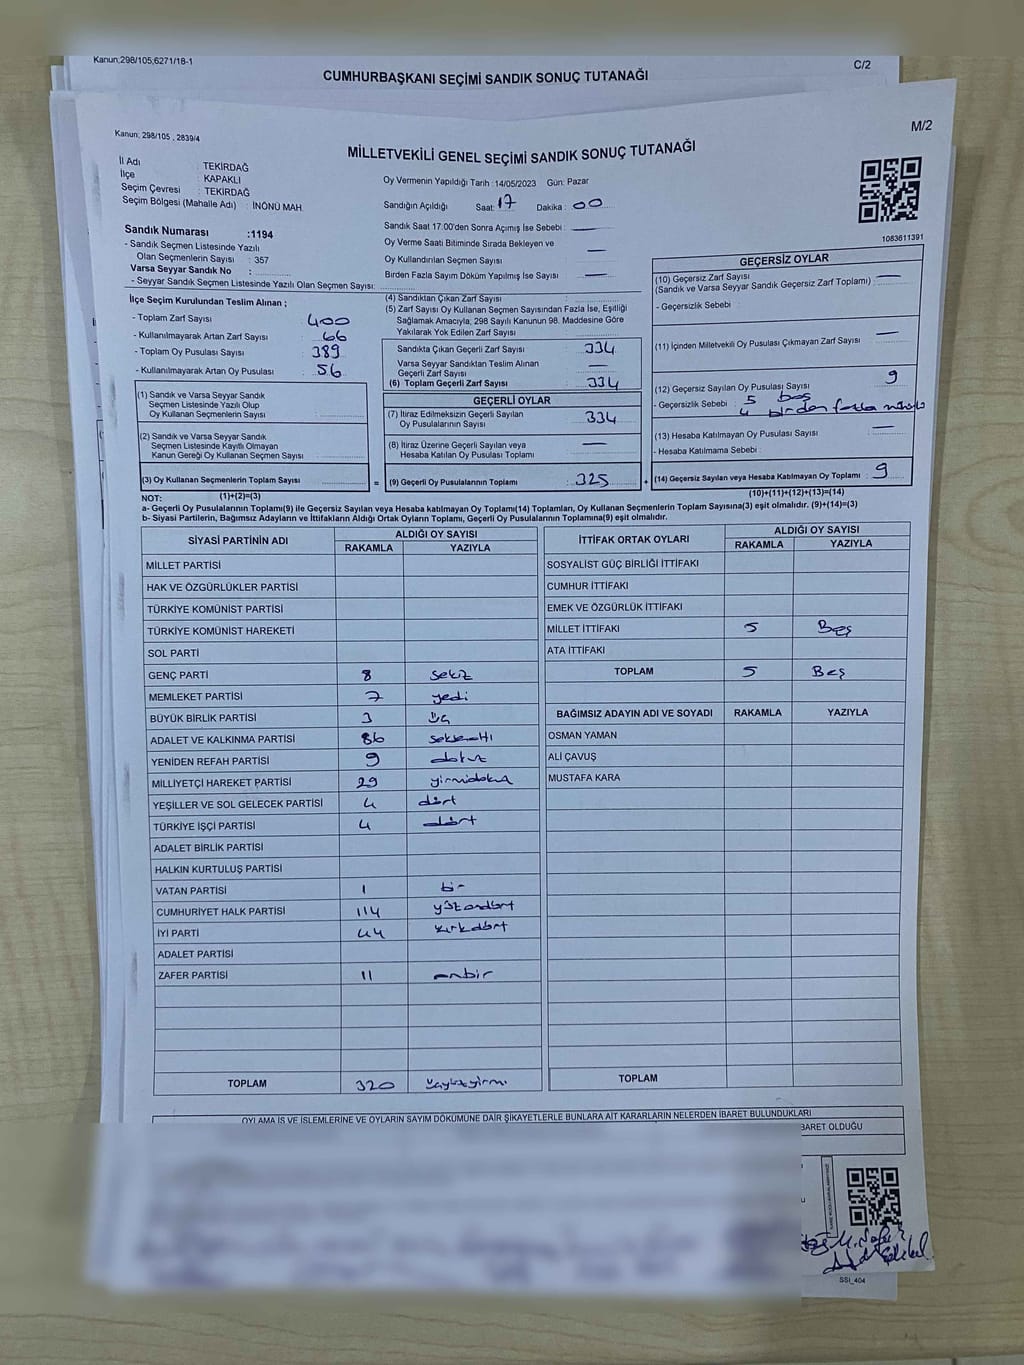 Kanun;298/105,6271/18-1
C/2
CUMHURBAŞKANI SEÇİMİ SANDIK SONUÇ TUTANAĞI
Kanun; 298/105 , 2839/4
M/2
MİLLETVEKİLİ GENEL SEÇİMİ SANDIK SONUÇ TUTANAĞI
İl Adı : TEKİRDAĞ
İlçe : KAPAKLI
Seçim Çevresi : TEKİRDAĞ
Seçim Bölgesi (Mahalle Adı) : İNÖNÜ MAH.
Sandık Numarası :1194
- Sandık Seçmen Listesinde Yazılı
Olan Seçmenlerin Sayısı : 357
Varsa Seyyar Sandık No :
- Seyyar Sandık Seçmen Listesinde Yazılı Olan Seçmen Sayısı:
Oy Vermenin Yapıldığı Tarih :14/05/2023 Gün: Pazar
Sandığın Açıldığı Saat: 17 Dakika : 00
Sandık Saat 17:00'den Sonra Açımış İse Sebebi : —
Oy Verme Saati Bitiminde Sırada Bekleyen ve
Oy Kullandırılan Seçmen Sayısı : —
Birden Fazla Sayım Döküm Yapılmış İse Sayısı : —
1083611391
İlçe Seçim Kurulundan Teslim Alınan ;
- Toplam Zarf Sayısı : 400
- Kullanılmayarak Artan Zarf Sayısı : 66
- Toplam Oy Pusulası Sayısı : 389
- Kullanılmayarak Artan Oy Pusulası : 56
(1) Sandık ve Varsa Seyyar Sandık
Seçmen Listesinde Yazılı Olup
Oy Kullanan Seçmenlerin Sayısı :
(2) Sandık ve Varsa Seyyar Sandık
Seçmen Listesinde Kayıtlı Olmayan
Kanun Gereği Oy Kullanan Seçmen Sayısı :
(3) Oy Kullanan Seçmenlerin Toplam Sayısı :
(4) Sandıktan Çıkan Zarf Sayısı :
(5) Zarf Sayısı Oy Kullanan Seçmen Sayısından Fazla İse, Eşitliği
Sağlamak Amacıyla, 298 Sayılı Kanunun 98. Maddesine Göre
Yakılarak Yok Edilen Zarf Sayısı :
Sandıkta Çıkan Geçerli Zarf Sayısı : 334
Varsa Seyyar Sandıktan Teslim Alınan
Geçerli Zarf Sayısı : —
(6) Toplam Geçerli Zarf Sayısı : 334
GEÇERLİ OYLAR
(7) İtiraz Edilmeksizin Geçerli Sayılan
Oy Pusulalarının Sayısı : 334
(8) İtiraz Üzerine Geçerli Sayılan veya
Hesaba Katılan Oy Pusulası Toplamı : —
= (9) Geçerli Oy Pusulalarının Toplamı : 325
GEÇERSİZ OYLAR
(10) Geçersiz Zarf Sayısı
(Sandık ve Varsa Seyyar Sandık Geçersiz Zarf Toplamı) : —
- Geçersizlik Sebebi :
(11) İçinden Milletvekili Oy Pusulası Çıkmayan Zarf Sayısı : —
(12) Geçersiz Sayılan Oy Pusulası Sayısı : 9
- Geçersizlik Sebebi : 5 boş
4 birden fazla mühür
(13) Hesaba Katılmayan Oy Pusulası Sayısı : —
- Hesaba Katılmama Sebebi :
+ (14) Geçersiz Sayılan veya Hesaba Katılmayan Oy Toplamı : 9
NOT: (1)+(2)=(3)
(10)+(11)+(12)+(13)=(14)
a- Geçerli Oy Pusulalarının Toplamı(9) ile Geçersiz Sayılan veya Hesaba katılmayan Oy Toplamı(14) Toplamları, Oy Kullanan Seçmenlerin Toplam Sayısına(3) eşit olmalıdır. (9)+(14)=(3)
b- Siyasi Partilerin, Bağımsız Adayların ve İttifakların Aldığı Ortak Oyların Toplamı, Geçerli Oy Pusulalarının Toplamına(9) eşit olmalıdır.
SİYASİ PARTİNİN ADI ALDIĞI OY SAYISI
RAKAMLA YAZIYLA
MİLLET PARTİSİ
HAK VE ÖZGÜRLÜKLER PARTİSİ
TÜRKİYE KOMÜNİST PARTİSİ
TÜRKİYE KOMÜNİST HAREKETİ
SOL PARTİ
GENÇ PARTİ 8 sekiz
MEMLEKET PARTİSİ 7 yedi
BÜYÜK BİRLİK PARTİSİ 3 üç
ADALET VE KALKINMA PARTİSİ 86 seksenaltı
YENİDEN REFAH PARTİSİ 9 dokuz
MİLLİYETÇİ HAREKET PARTİSİ 29 yirmidokuz
YEŞİLLER VE SOL GELECEK PARTİSİ 4 dört
TÜRKİYE İŞÇİ PARTİSİ 4 dört
ADALET BİRLİK PARTİSİ
HALKIN KURTULUŞ PARTİSİ
VATAN PARTİSİ 1 bir
CUMHURİYET HALK PARTİSİ 114 yüzondört
İYİ PARTİ 44 kırkdört
ADALET PARTİSİ
ZAFER PARTİSİ 11 onbir
TOPLAM 320 üçyüzyirmi
İTTİFAK ORTAK OYLARI ALDIĞI OY SAYISI
RAKAMLA YAZIYLA
SOSYALİST GÜÇ BİRLİĞİ İTTİFAKI
CUMHUR İTTİFAKI
EMEK VE ÖZGÜRLÜK İTTİFAKI
MİLLET İTTİFAKI 5 Beş
ATA İTTİFAKI
TOPLAM 5 Beş
BAĞIMSIZ ADAYIN ADI VE SOYADI RAKAMLA YAZIYLA
OSMAN YAMAN
ALİ ÇAVUŞ
MUSTAFA KARA
TOPLAM
OYLAMA İŞ VE İŞLEMLERİNE VE OYLARIN SAYIM DÖKÜMÜNE DAİR ŞİKAYETLERLE BUNLARA AİT KARARLARIN NELERDEN İBARET BULUNDUKLARI
BARET OLDUĞU
SSİ_404